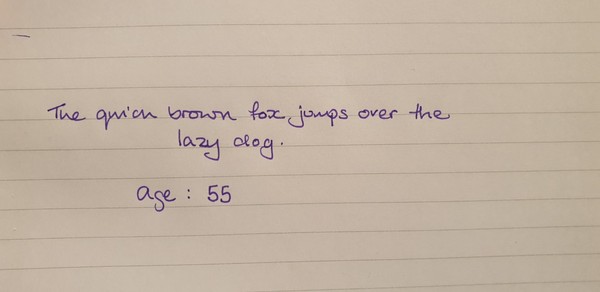 The quick brown fox jumps over the
lazy dog.
age : 55